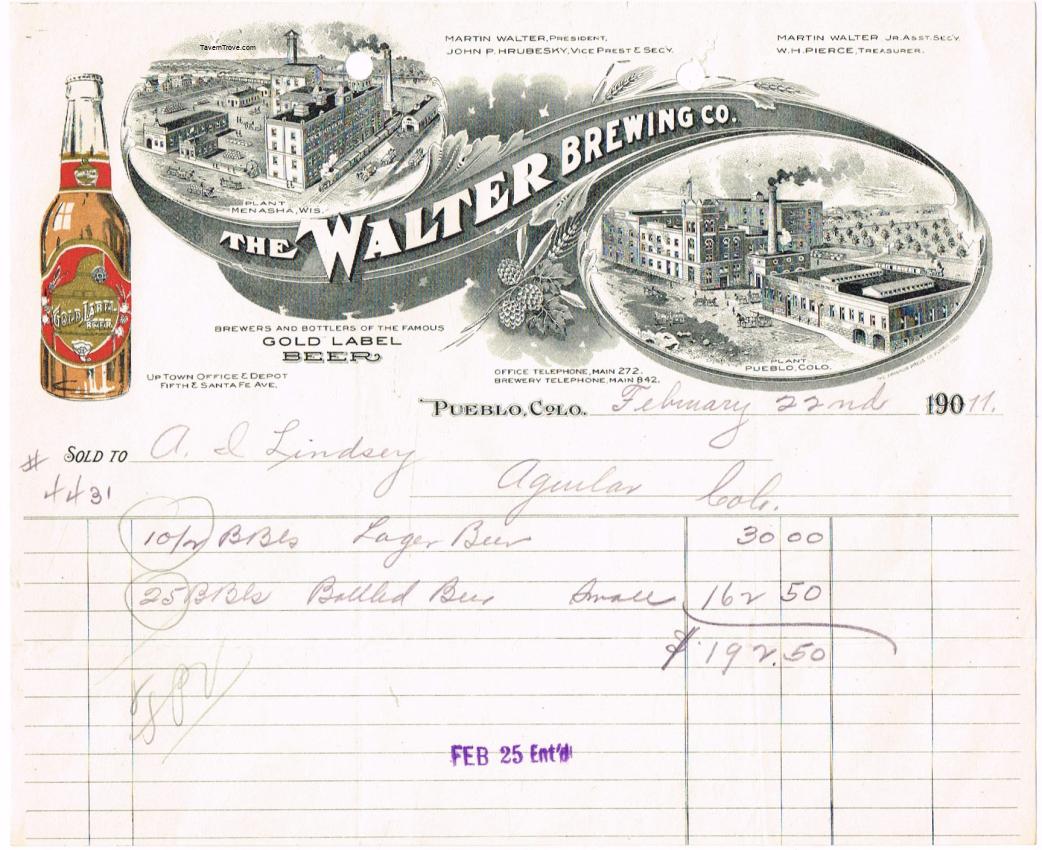 TavernTrove.com
MARTIN WALTER, PRESIDENT,
JOHN P. HRUBESKY, VICE PREST & SEC'Y.
MARTIN WALTER JR. ASST. SEC'Y.
W.H. PIERCE, TREASURER.
THE WALTER BREWING CO.
PLANT
MENASHA, WIS.
GOLD LABEL
BEER
PLANT
PUEBLO, COLO.
BREWERS AND BOTTLERS OF THE FAMOUS
GOLD LABEL
BEER
UP TOWN OFFICE & DEPOT
FIFTH & SANTA FE AVE.
OFFICE TELEPHONE, MAIN 272.
BREWERY TELEPHONE, MAIN 842.
PUEBLO, COLO. February 22nd 190 11.
SOLD TO A. I Lindsey
# 4431
Aguilar Colo.
10/2 BBls Lager Beer 30 00
25 BBls Bottled Beer Small 162 50
$ 192.50
FEB 25 Ent'd